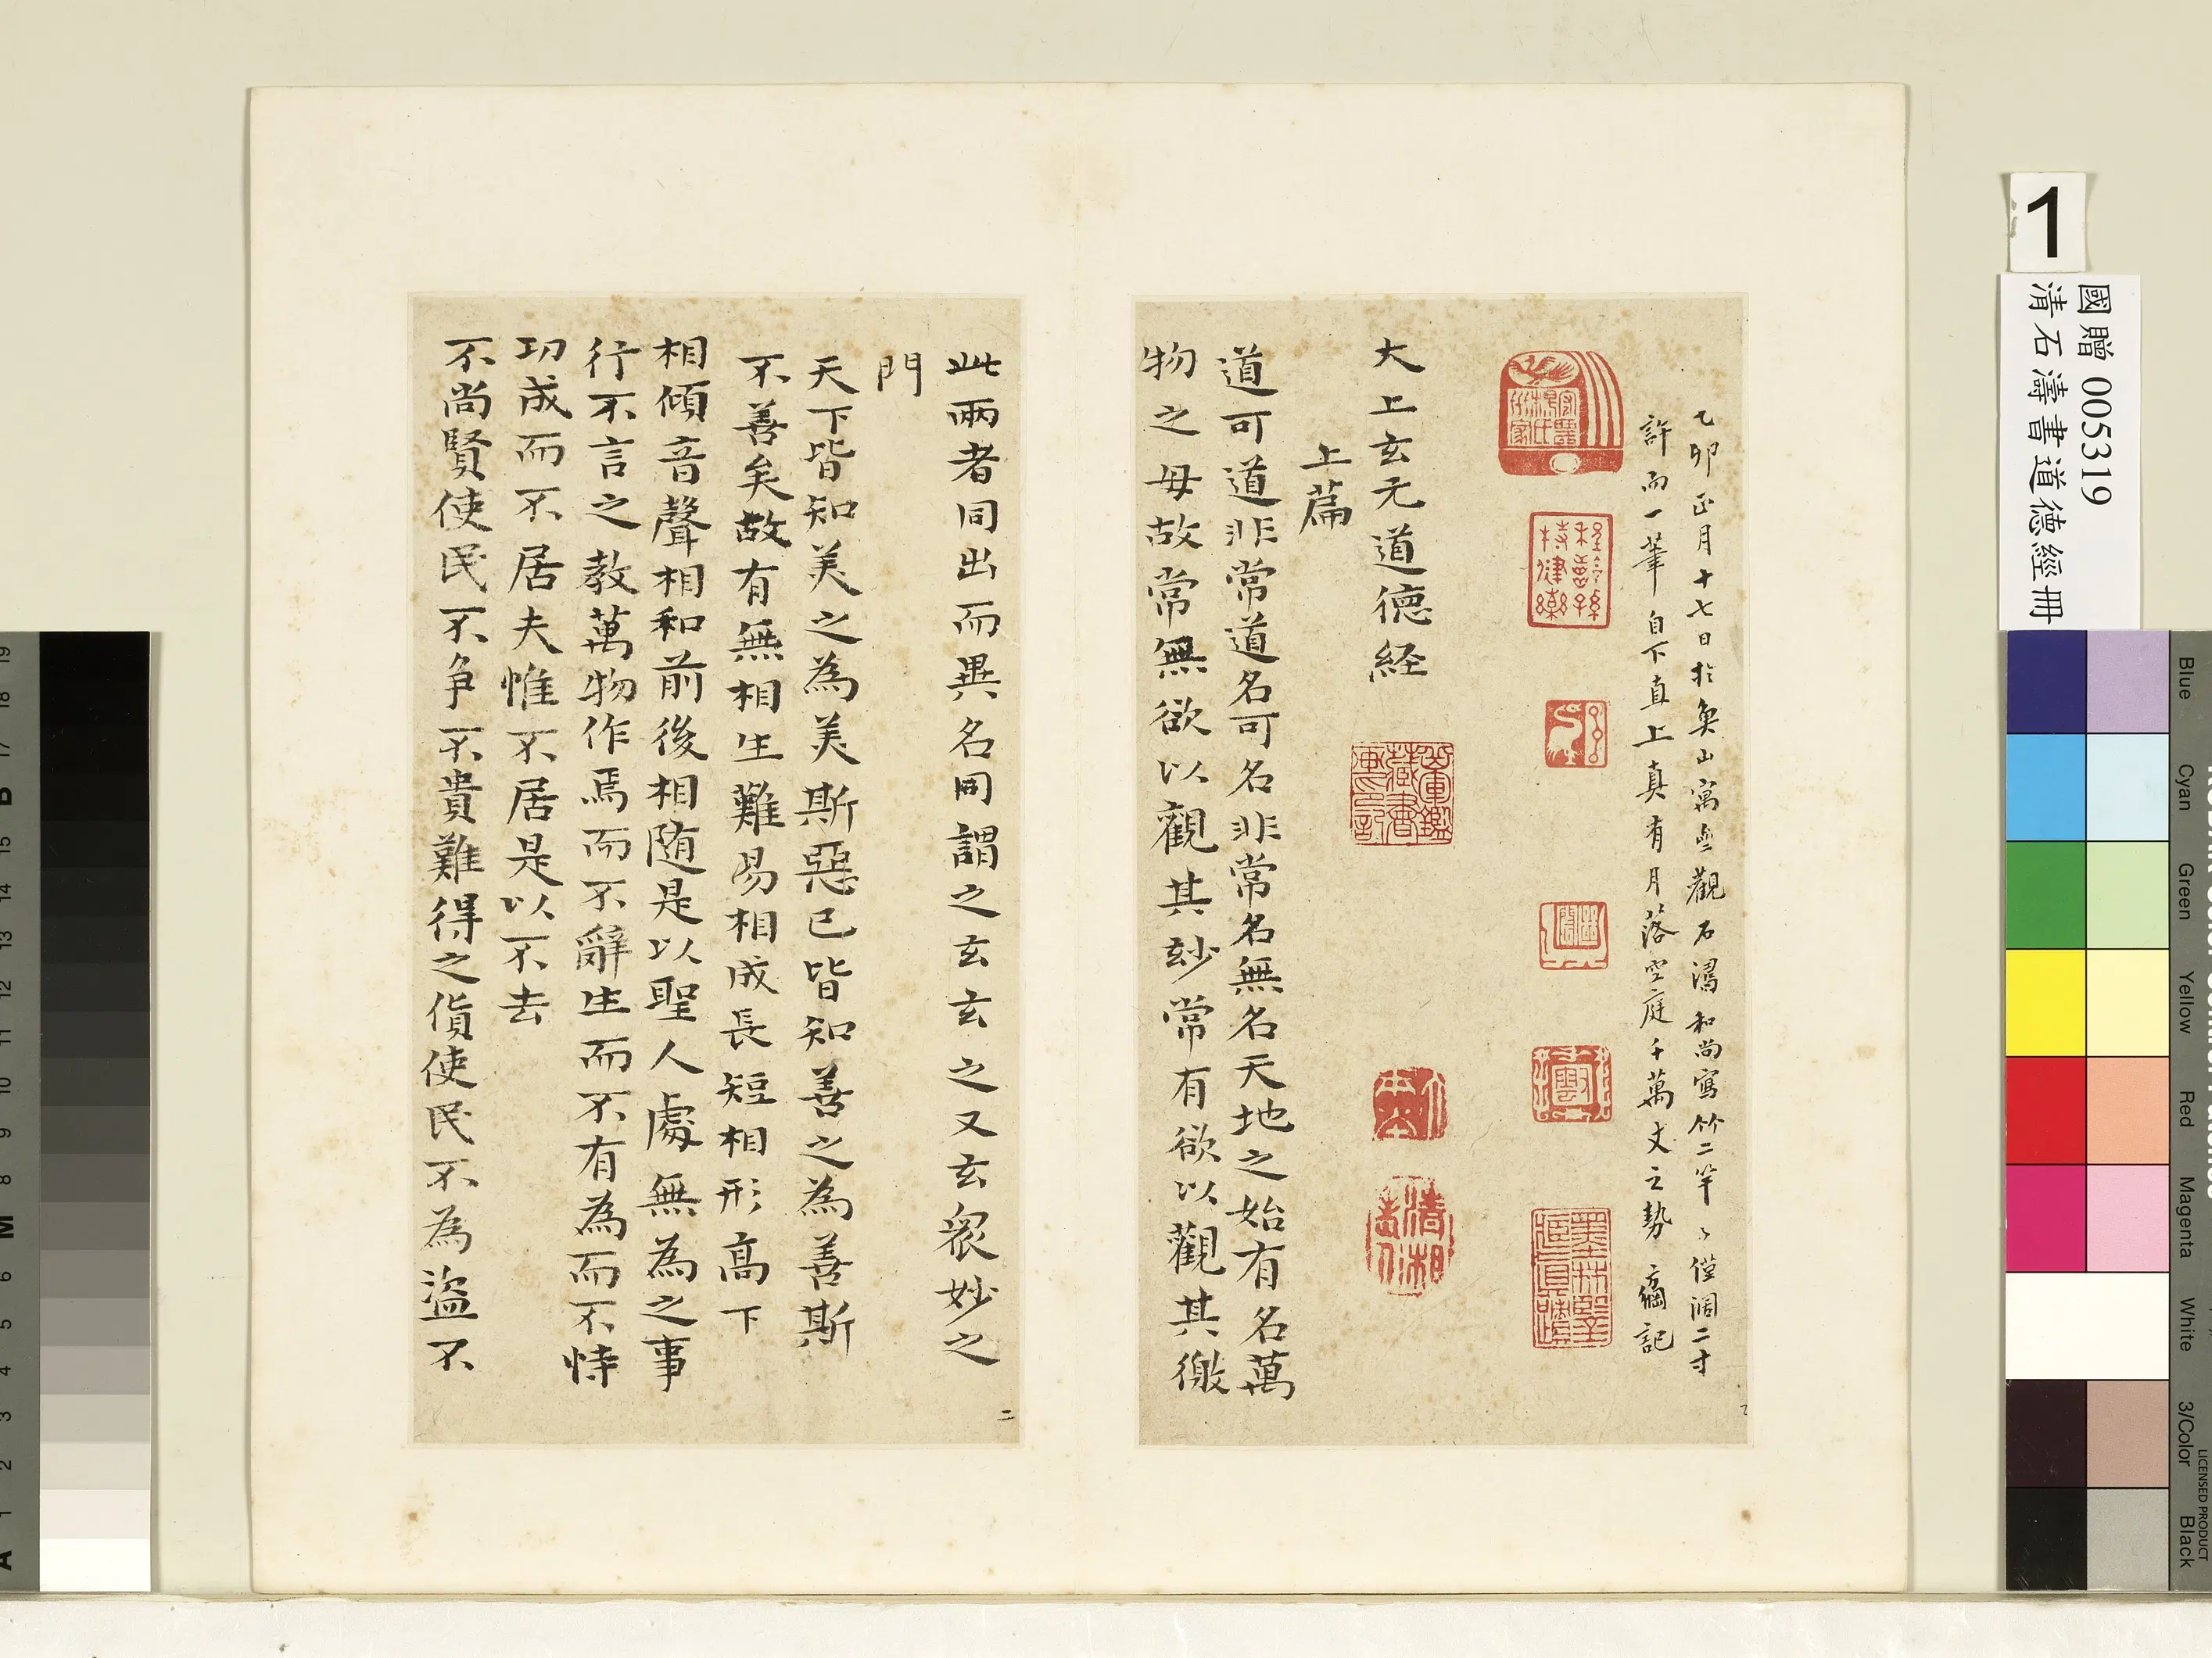 乙卯正月十七日於奐山寓齋觀石濤和尚寫竹二竿々僅濶二寸
許而一筆自下直上真有月落空庭千萬丈之勢 記
大上玄元道德経
上篇
道可道非常道名可名非常名無名天地之始有名萬
物之母故常無欲以觀其玅常有欲以觀其徼
此兩者同出而異名同謂之玄玄之又玄衆妙之
門
天下皆知美之為美斯惡已皆知善之為善斯
不善矣故有無相生難易相成長短相形高下
相傾音聲相和前後相随是以聖人處無為之事
行不言之教萬物作焉而不辭生而不有為而不恃
功成而不居夫惟不居是以不去
不尚賢使民不争不貴難得之貨使民不為盗不
二
清湘老人
1
國贈 005319
清石濤書道德經冊
Blue
Cyan
Green
Yellow
Red
Magenta
White
3/Color
Black
LICENSED PRODUCT
19
18
17
B
15
14
13
12
11
10
9
8
M
6
5
4
3
2
1
A